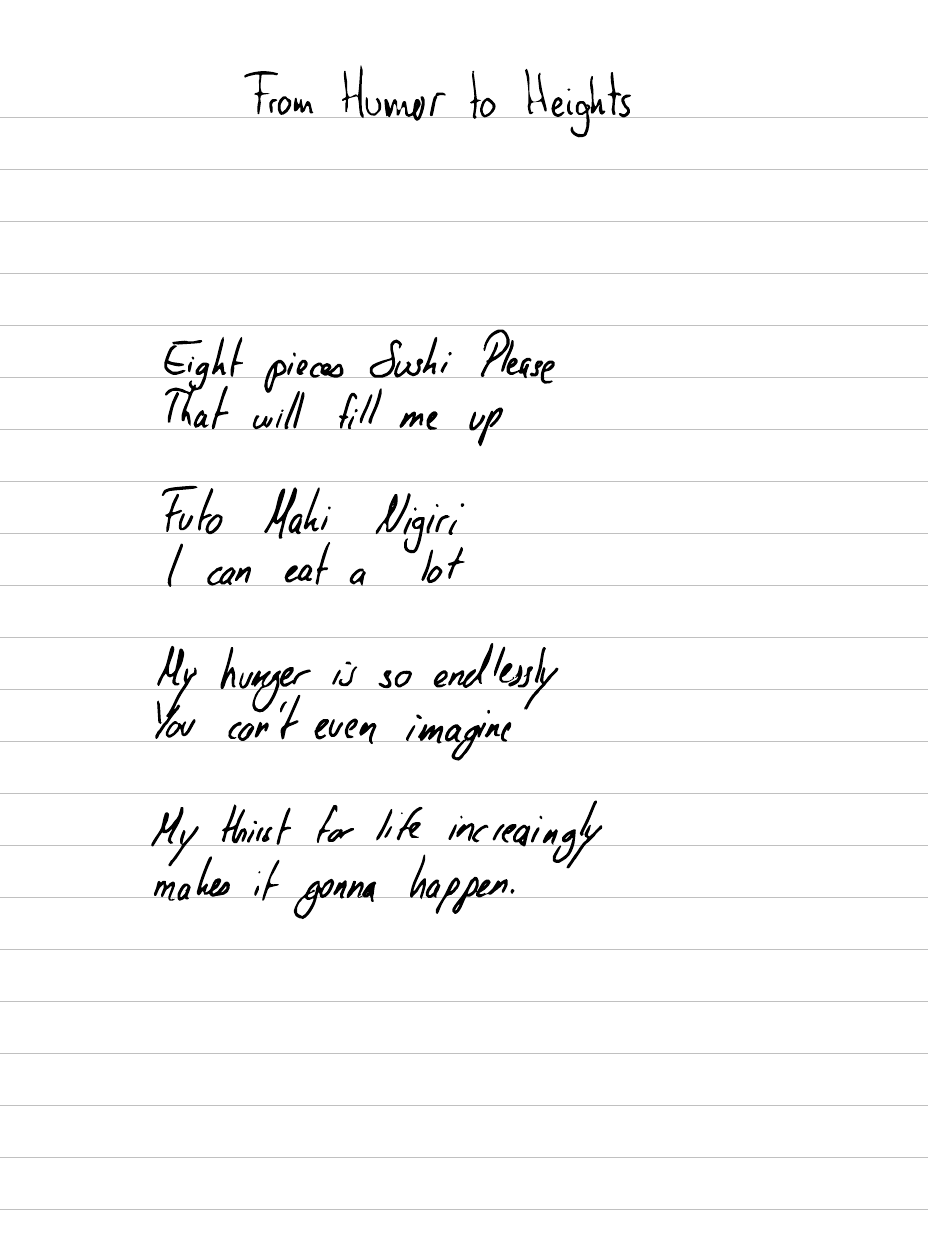 From Humor to Heights
Eight pieces Sushi Please
That will fill me up
Futo Maki Nigiri
I can eat a lot
My hunger is so endlessly
You can't even imagine
My thirst for life increasingly
makes it gonna happen.